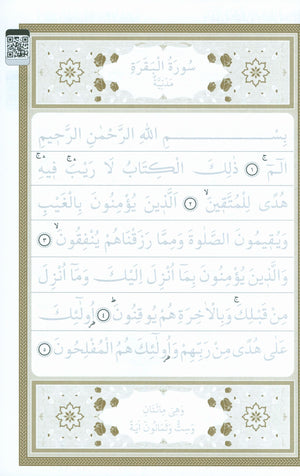 سُورَةُ الْبَقَرَةِ
مَدَنِيَّةٌ
بِسْمِ اللّٰهِ الرَّحْمٰنِ الرَّحِيمِ
الٓمٓ ۚ ﴿١﴾ ذٰلِكَ الْكِتَابُ لَا رَيْبَ ۚۛ فِيهِ ۚۛ
هُدًى لِلْمُتَّقِينَ ۙ ﴿٢﴾ اَلَّذِينَ يُؤْمِنُونَ بِالْغَيْبِ
وَيُقِيمُونَ الصَّلٰوةَ وَمِمَّا رَزَقْنَاهُمْ يُنْفِقُونَ ۙ ﴿٣﴾
وَالَّذِينَ يُؤْمِنُونَ بِمَٓا اُنْزِلَ اِلَيْكَ وَمَٓا اُنْزِلَ
مِنْ قَبْلِكَ ۚ وَبِالْاٰخِرَةِ هُمْ يُوقِنُونَ ۜ ﴿٤﴾ اُو۬لٰٓئِكَ
عَلٰى هُدًى مِنْ رَبِّهِمْ وَاُو۬لٰٓئِكَ هُمُ الْمُفْلِحُونَ ﴿٥﴾
وَهِيَ مِائَتَانِ
وَسِتٌّ وَثَمَانُونَ اٰيَةً